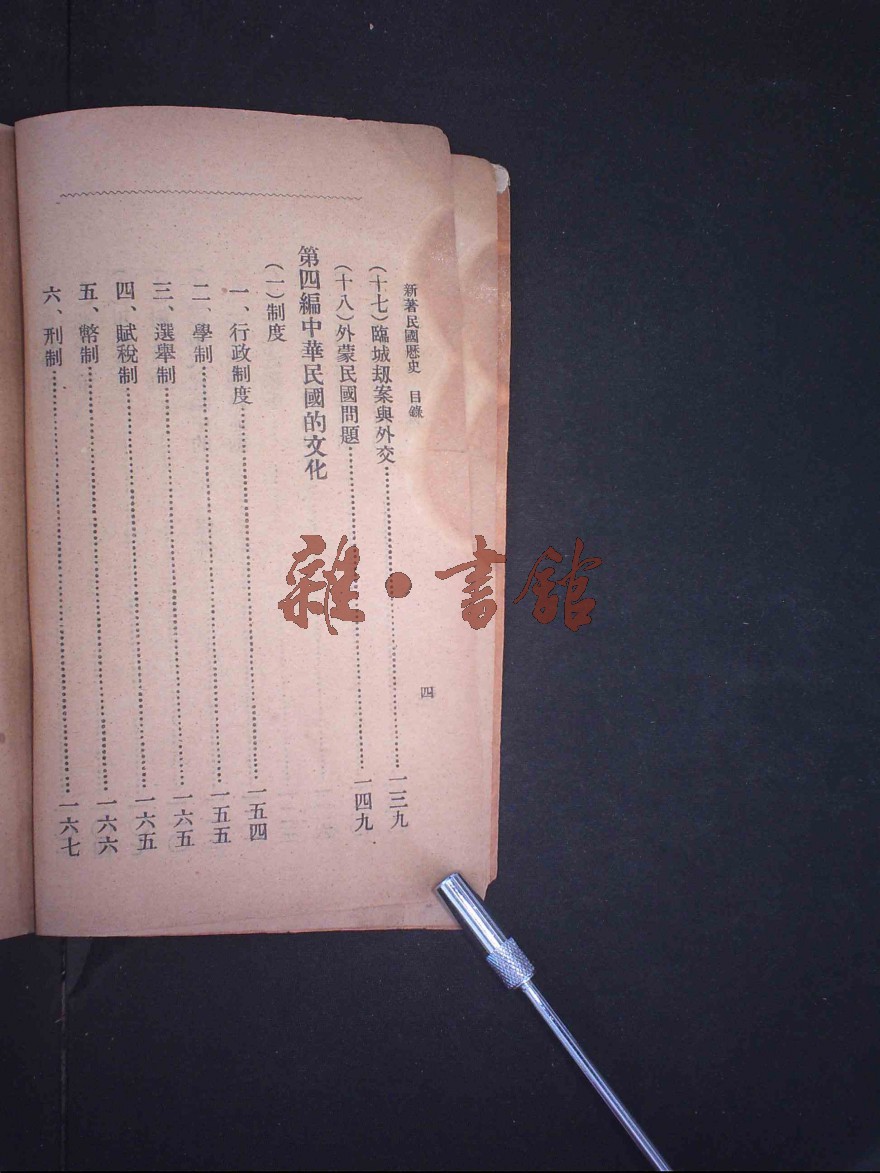 新著民國歷史 目錄
四
(十七)臨城刼案與外交……一三九
(十八)外蒙民國問題……一四九
第四編中華民國的文化
(一)制度
一、行政制度……一五四
二、學制……一五五
三、選舉制……一六五
四、賦稅制……一六五
五、幣制……一六六
六、刑制……一六七
雜·書館